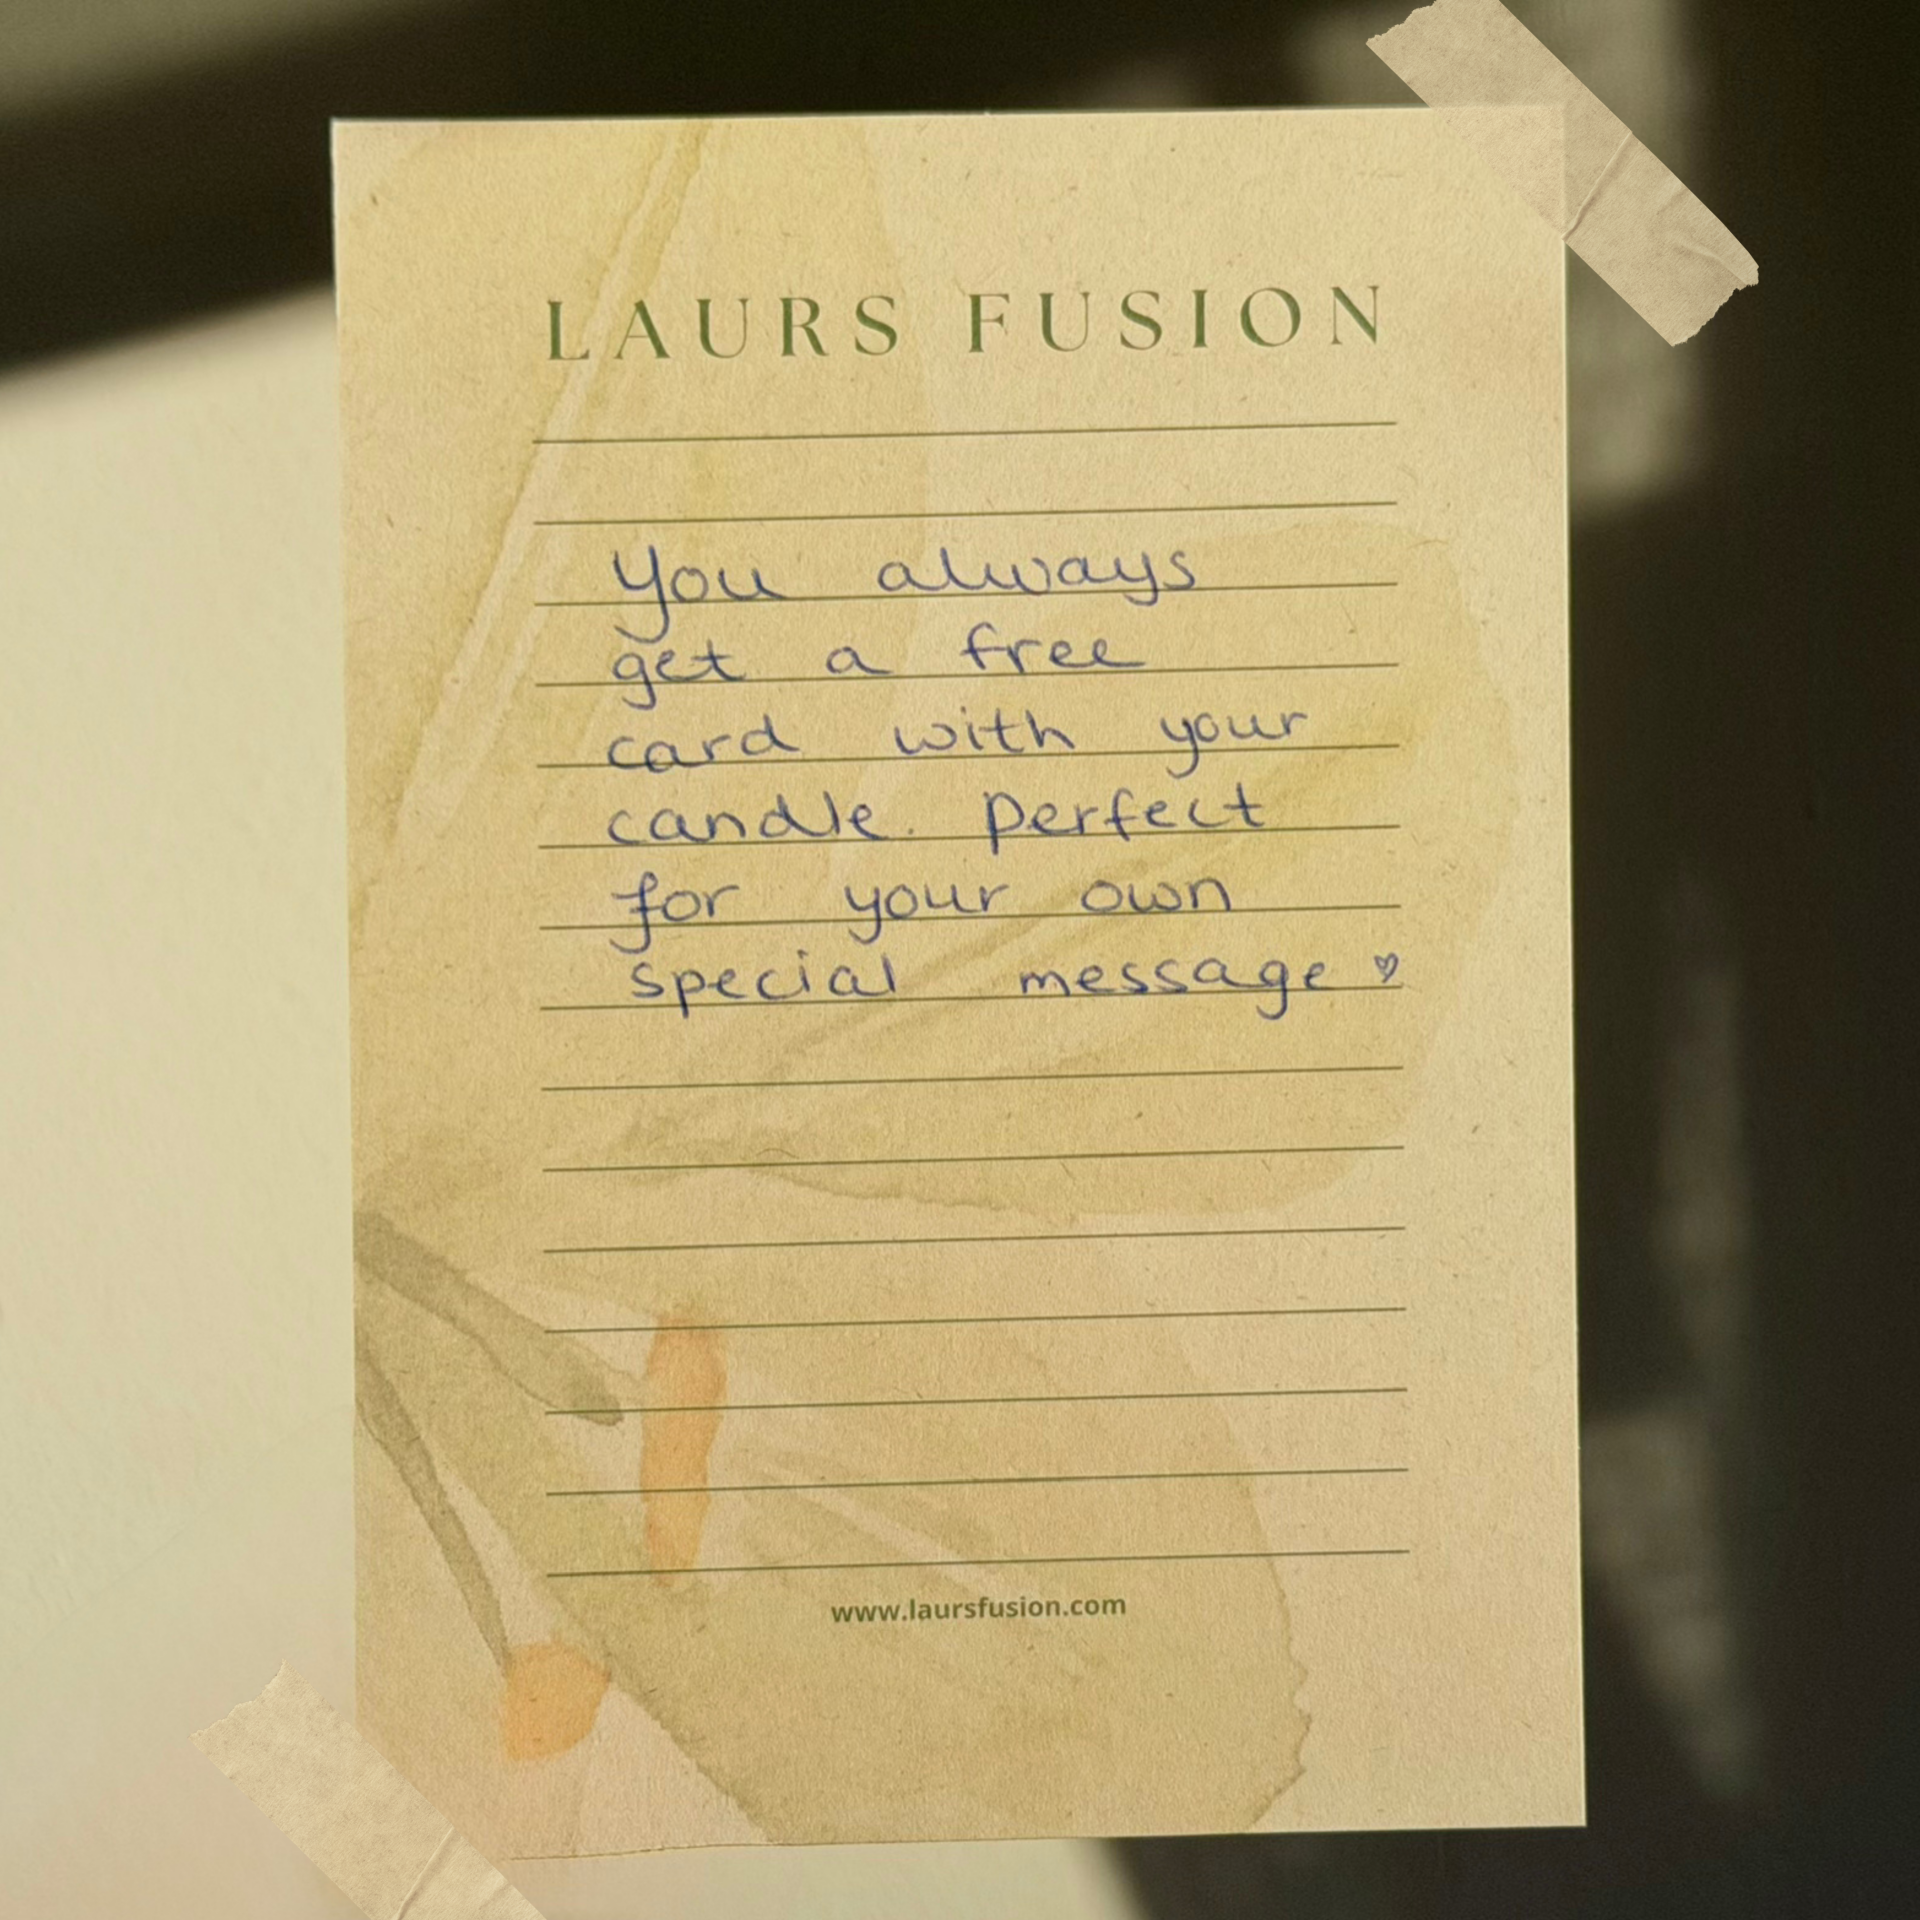 LAURS FUSION
You always
get a free
card with your
candle. perfect
for your own
special message ♡
www.laursfusion.com